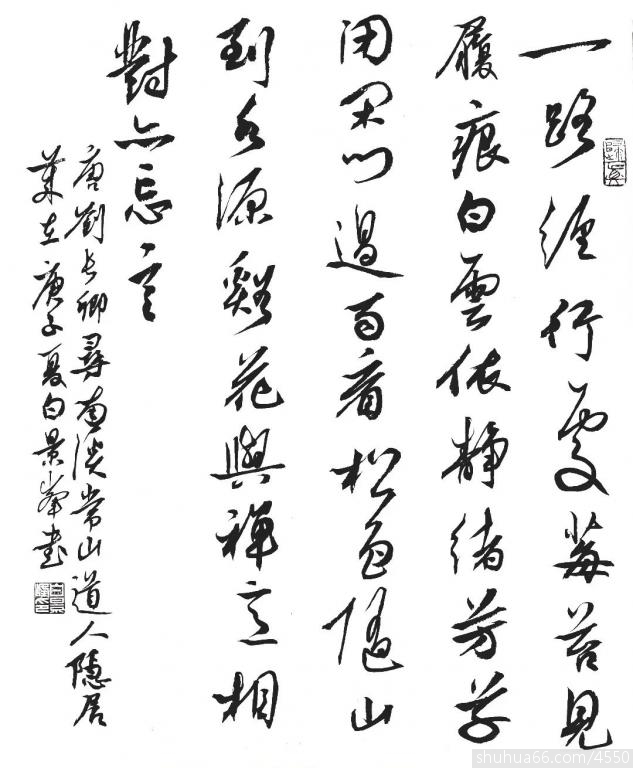 一路經行處莓苔見
履痕白雲依靜緒芳草
閉閑門過雨看松色隨山
到水源谿花與禪意相
對亦忘言
唐劉長卿尋南溪常山道人隱居
歲在庚子夏白景峯書
shuhua66.com/4550